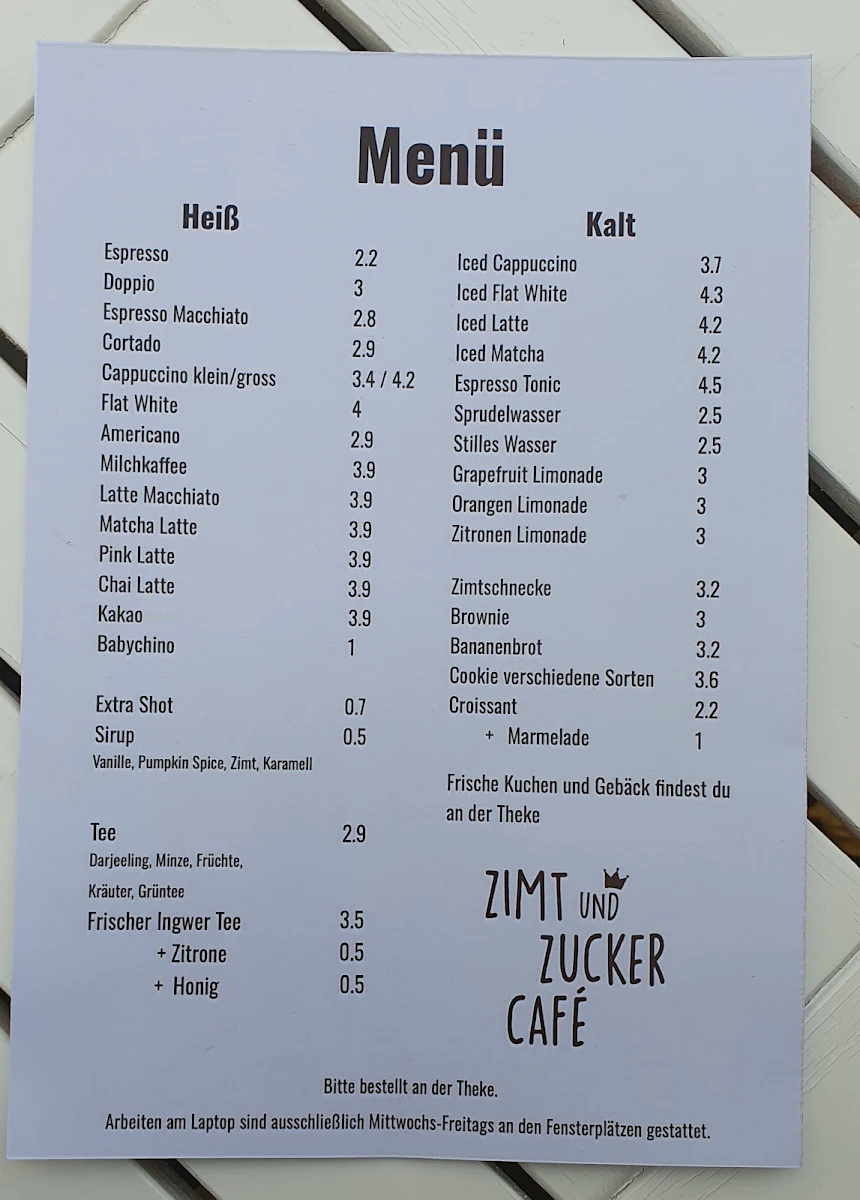 Menü
Heiß
Espresso 2.2
Doppio 3
Espresso Macchiato 2.8
Cortado 2.9
Cappuccino klein/gross 3.4 / 4.2
Flat White 4
Americano 2.9
Milchkaffee 3.9
Latte Macchiato 3.9
Matcha Latte 3.9
Pink Latte 3.9
Chai Latte 3.9
Kakao 3.9
Babychino 1
Extra Shot 0.7
Sirup 0.5
Vanille, Pumpkin Spice, Zimt, Karamell
Tee 2.9
Darjeeling, Minze, Früchte,
Kräuter, Grüntee
Frischer Ingwer Tee 3.5
+ Zitrone 0.5
+ Honig 0.5
Kalt
Iced Cappuccino 3.7
Iced Flat White 4.3
Iced Latte 4.2
Iced Matcha 4.2
Espresso Tonic 4.5
Sprudelwasser 2.5
Stilles Wasser 2.5
Grapefruit Limonade 3
Orangen Limonade 3
Zitronen Limonade 3
Zimtschnecke 3.2
Brownie 3
Bananenbrot 3.2
Cookie verschiedene Sorten 3.6
Croissant 2.2
+ Marmelade 1
Frische Kuchen und Gebäck findest du
an der Theke
ZIMT UND
ZUCKER
CAFÉ
Bitte bestellt an der Theke.
Arbeiten am Laptop sind ausschließlich Mittwochs-Freitags an den Fensterplätzen gestattet.